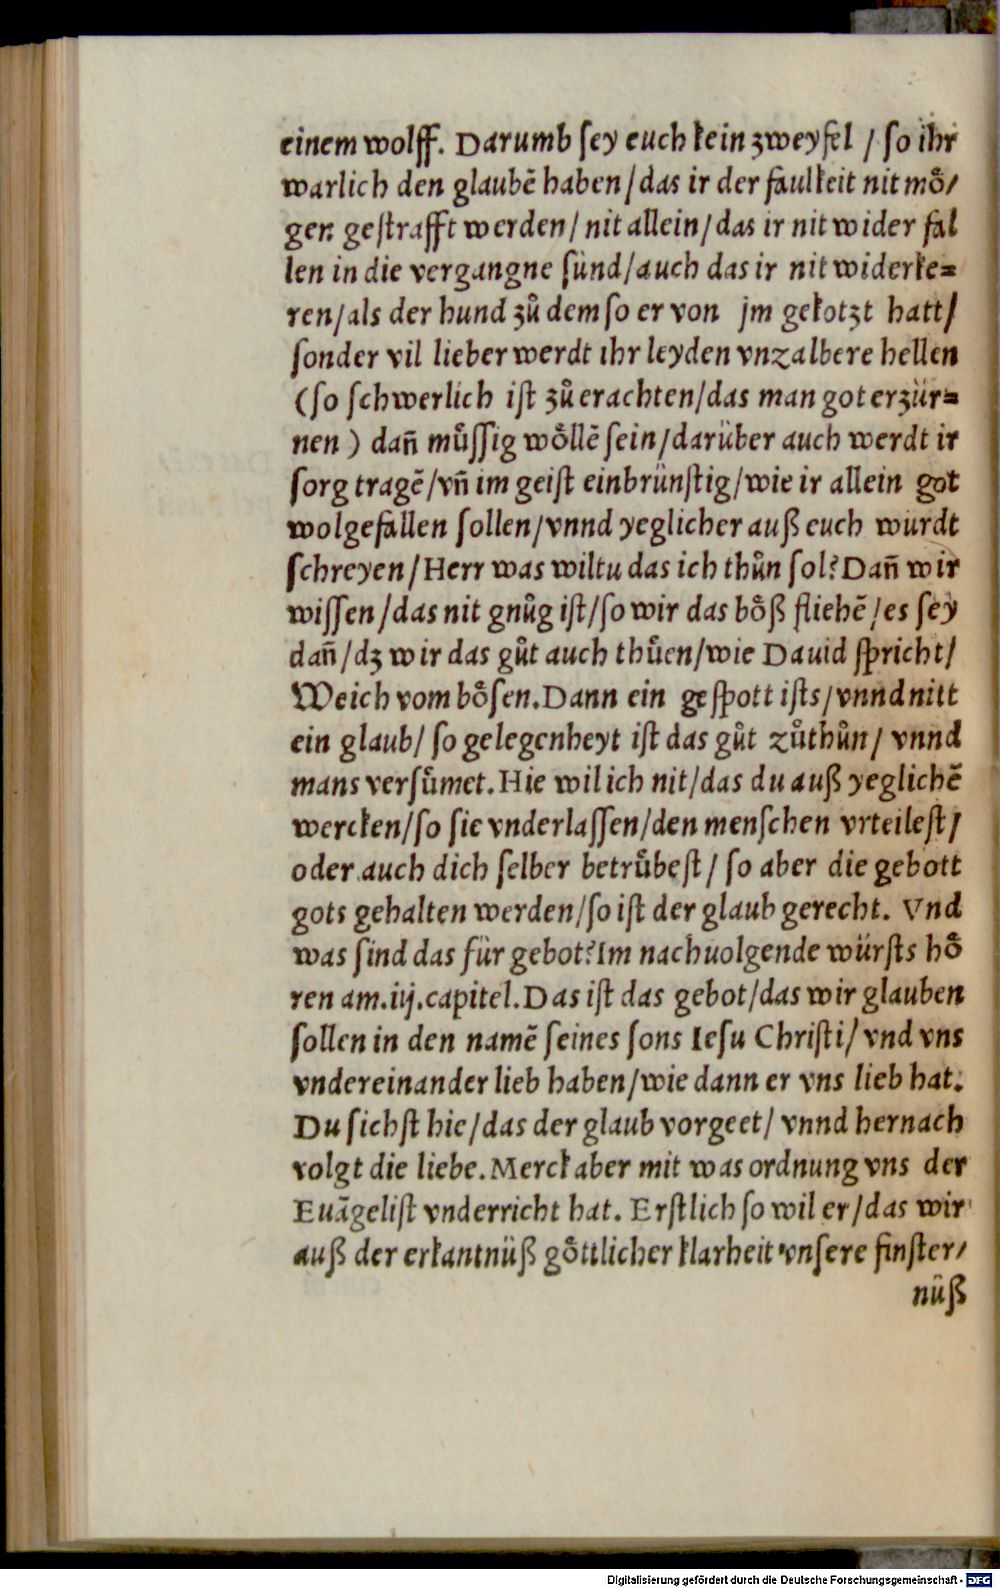 einem wolff. Darumb ſey euch kein zweyfel / ſo ihr
warlich den glaubē haben/das ir der faulkeit nit moͤ/
gen geſtrafft werden/ nit allein/das ir nit wider fal
len in die vergangne ſünd/auch das ir nit widerke=
ren/als der hund zů dem ſo er von jm gekotzt hatt/
ſonder vil lieber werdt ihr leyden vnzalbere hellen
(ſo ſchwerlich iſt zů erachten/das man got erzür=
nen ) dañ muͤſſig woͤllē ſein/darüber auch werdt ir
ſorg tragē/vñ im geiſt einbrünſtig/wie ir allein got
wolgefallen ſollen/vnnd yeglicher auß euch wurdt
ſchreyen/Herr was wiltu das ich thůn ſol? Dañ wir
wiſſen/das nit gnůg iſt/ſo wir das boͤß fliehē/es ſey
dañ/dz wir das gůt auch thuͤen/wie Dauid ſpricht/
Weich vom boͤſen. Dann ein geſpott iſts/vnnd nitt
ein glaub/ ſo gelegenheyt iſt das gůt zůthůn/ vnnd
mans verſuͤmet. Hie wil ich nit/das du auß yeglichē
wercken/ſo ſie vnderlaſſen/den menſchen vrteileſt/
oder auch dich ſelber betruͤbeſt/ ſo aber die gebott
gots gehalten werden/ſo iſt der glaub gerecht. Vnd
was ſind das für gebot? Im nachuolgende würſts hoͤ
ren am.iij.capitel. Das iſt das gebot/das wir glauben
ſollen in den namē ſeines ſons Ieſu Chriſti/ vnd vns
vndereinander lieb haben/wie dann er vns lieb hat.
Du ſichſt hie/das der glaub vorgeet/ vnnd hernach
volgt die liebe. Merck aber mit was ordnung vns der
Euāgeliſt vnderricht hat. Erſtlich ſo wil er/das wir
auß der erkantnüß goͤttlicher klarheit vnſere finſter/
nüß
Digitalisierung gefördert durch die Deutsche Forschungsgemeinschaft - DFG